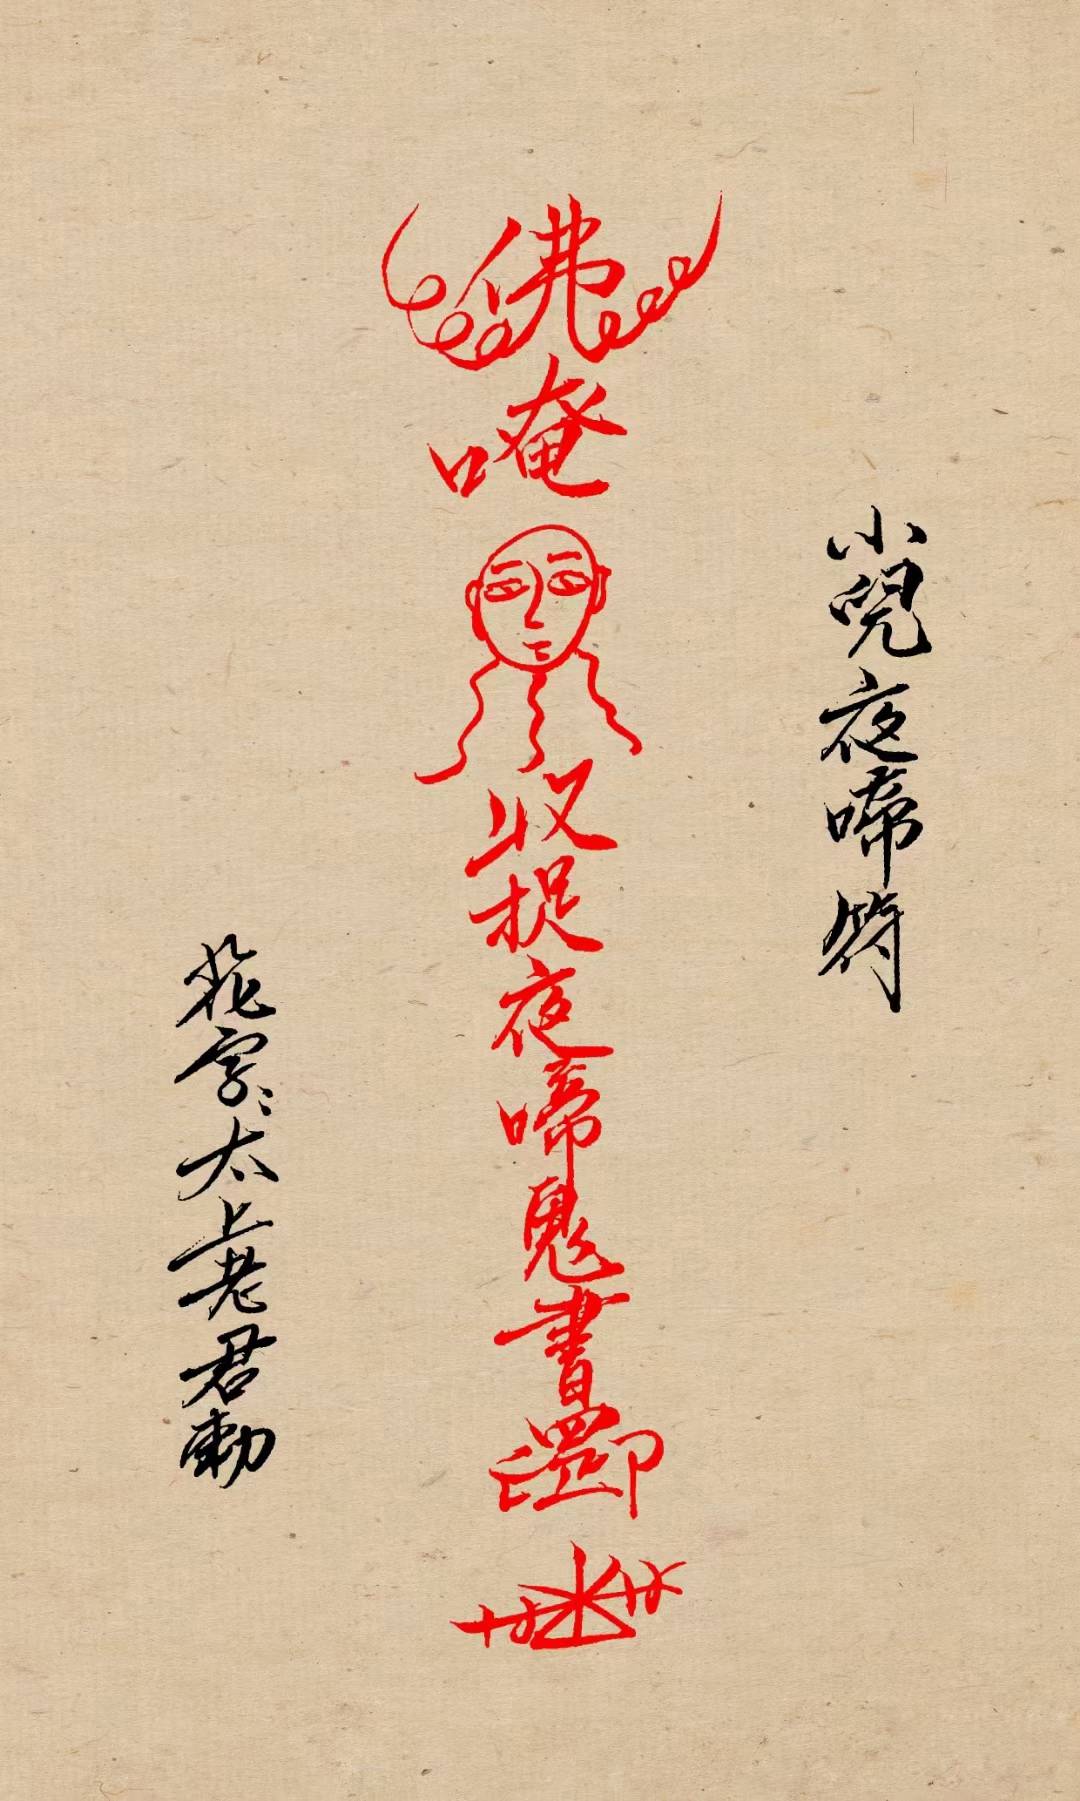 小兒夜啼符
佛唵收捉夜啼鬼書
花字：太上老君勅